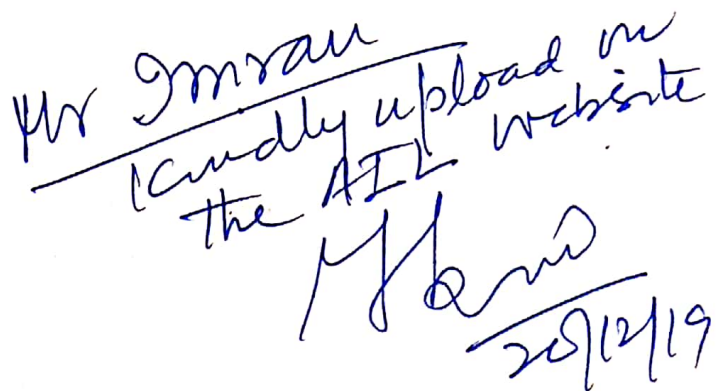 Mr Imran
Kindly upload on
the AIL website
20/12/19